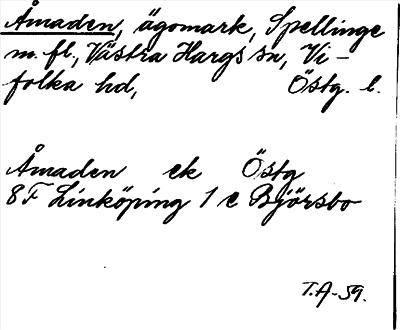 Åmaden, ägomark, Spellinge
m. fl., Västra Hargs sn, Vi-
folka hd, Östg. l.
Åmaden ek Östg
8F Linköping 1 c Björsbo
T.A-59.